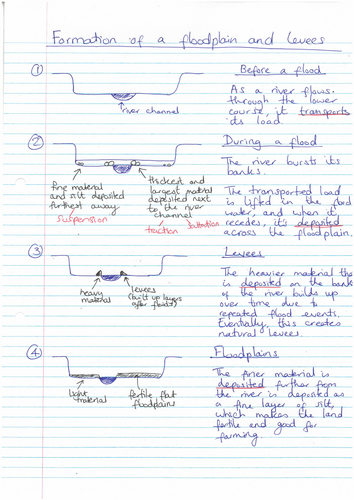 Formation of a floodplain and levees
① Before a flood
river channel
As a river flows
through the lower
course, it transports
its load.
② During a flood
fine material
and silt deposited
furthest away.
suspension
thickest and
largest material
deposited next
to the river
channel
traction saltation
The river bursts its
banks.
The transported load
is lifted in the flood
water, and when it
recedes, it's deposited
across the floodplain.
③ Levees
heavy
material
levees
(built up layers
after floods)
The heavier material tha
is deposited on the bank
of the river builds up
over time due to
repeated flood events.
Eventually, this creates
natural levees.
④ Floodplains
light
material
fertile flat
floodplains
The finer material is
deposited further from
the river is deposited as
a fine layer of silt,
which makes the land
fertile and good for
farming.